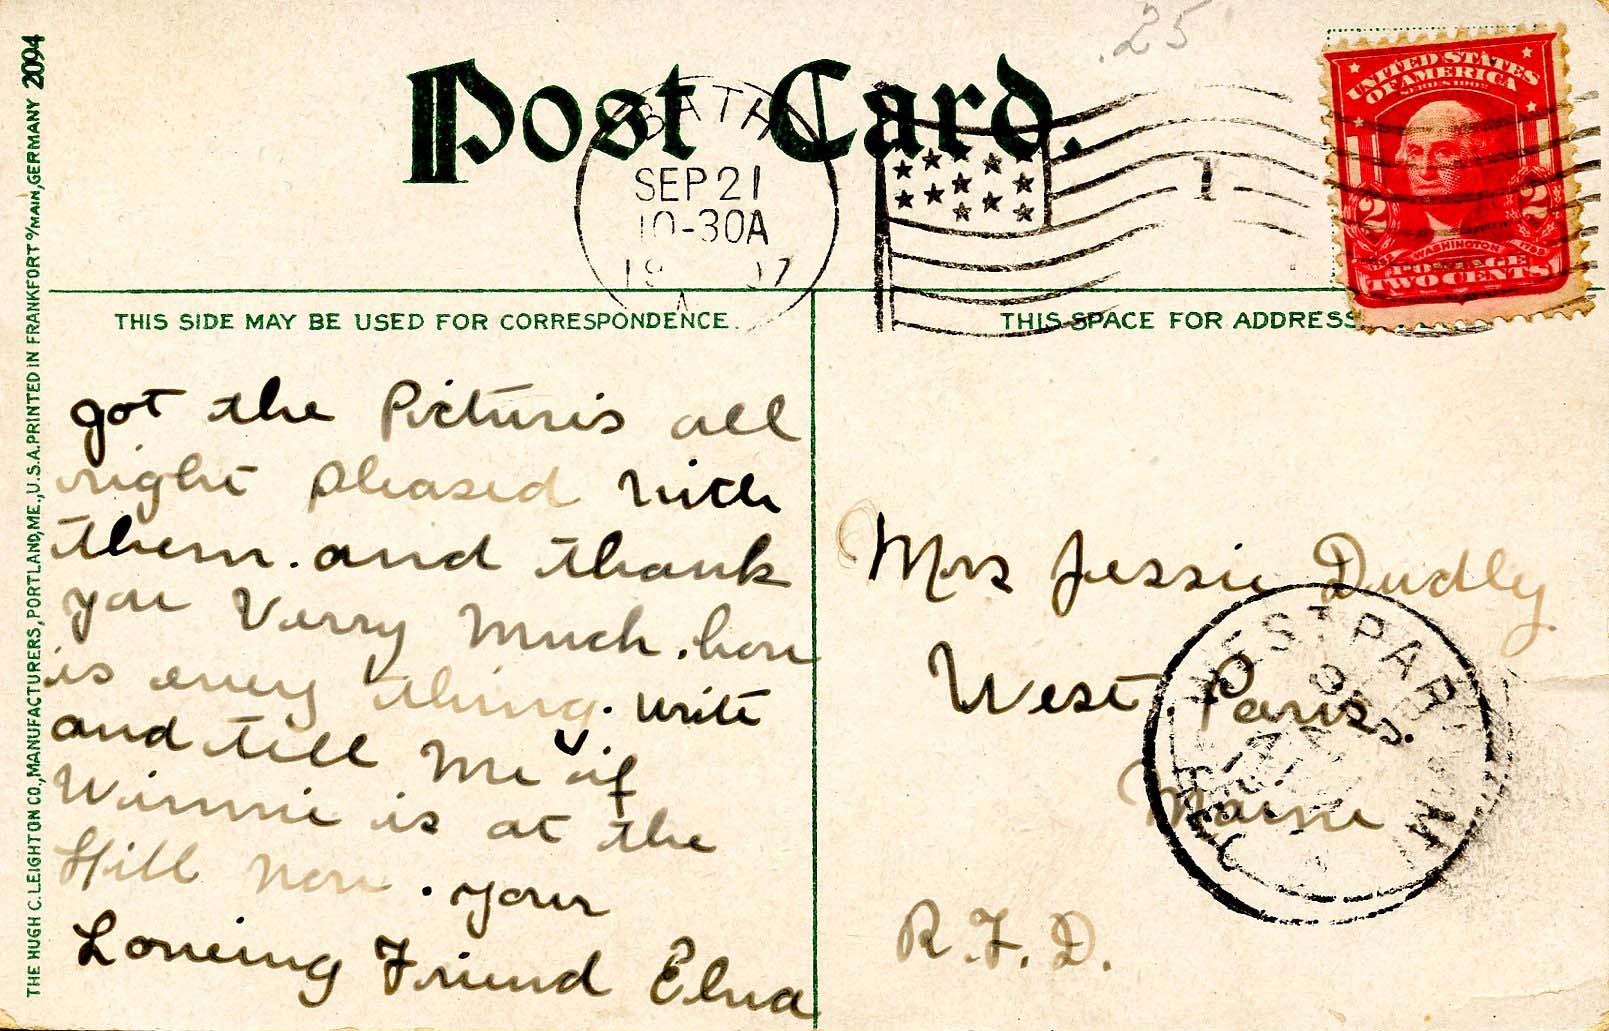 .25
Post Card.
BATH
SEP 21
10-30A
19 07
1
UNITED STATES
OF AMERICA
SERIES 1902
2 2
WASHINGTON
TWO CENTS
THIS SIDE MAY BE USED FOR CORRESPONDENCE.
THIS SPACE FOR ADDRESS
got the Picturis all
right pleased with
them. and thank
you Verry Much. how
is every thing. write
and till Me if
Winnie is at the
Hill now. your
Loveing Friend Elna
Mrs Jessie Dudly
West. Paris.
Maine
R.F.D.
WEST PARIS
THE HUGH C. LEIGHTON CO., MANUFACTURERS, PORTLAND, ME., U.S.A. PRINTED IN FRANKFORT o/MAIN, GERMANY 2094